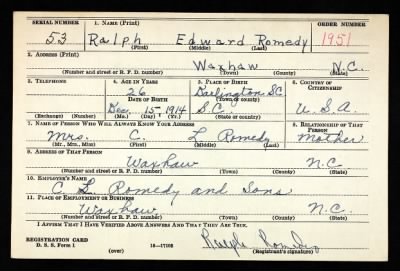 SERIAL NUMBER 1. NAME (Print) ORDER NUMBER
53 Ralph Edward Romedy 1951
(First) (Middle) (Last)
2. ADDRESS (Print)
Waxhaw N.C.
(Number and street or R. F. D. number) (Town) (County) (State)
3. TELEPHONE 4. AGE IN YEARS 5. PLACE OF BIRTH 6. COUNTRY OF CITIZENSHIP
26 Darlington SC
DATE OF BIRTH (Town or county)
Dec. 15, 1914 S.C. U.S.A.
(Exchange) (Number) (Mo.) (Day) (Yr.) (State or country)
7. NAME OF PERSON WHO WILL ALWAYS KNOW YOUR ADDRESS 8. RELATIONSHIP OF THAT PERSON
Mrs. C. L Romedy Mother
(Mr., Mrs., Miss) (First) (Middle) (Last)
9. ADDRESS OF THAT PERSON
Waxhaw N.C
(Number and street or R. F. D. number) (Town) (County) (State)
10. EMPLOYER'S NAME
C. L. Romedy and Sons
11. PLACE OF EMPLOYMENT OR BUSINESS
Waxhaw N.C.
(Number and street or R. F. D. number) (Town) (County) (State)
I AFFIRM THAT I HAVE VERIFIED ABOVE ANSWERS AND THAT THEY ARE TRUE.
REGISTRATION CARD
D. S. S. Form 1 16—17105 Ralph Romedy
(over) (Registrant's signature)